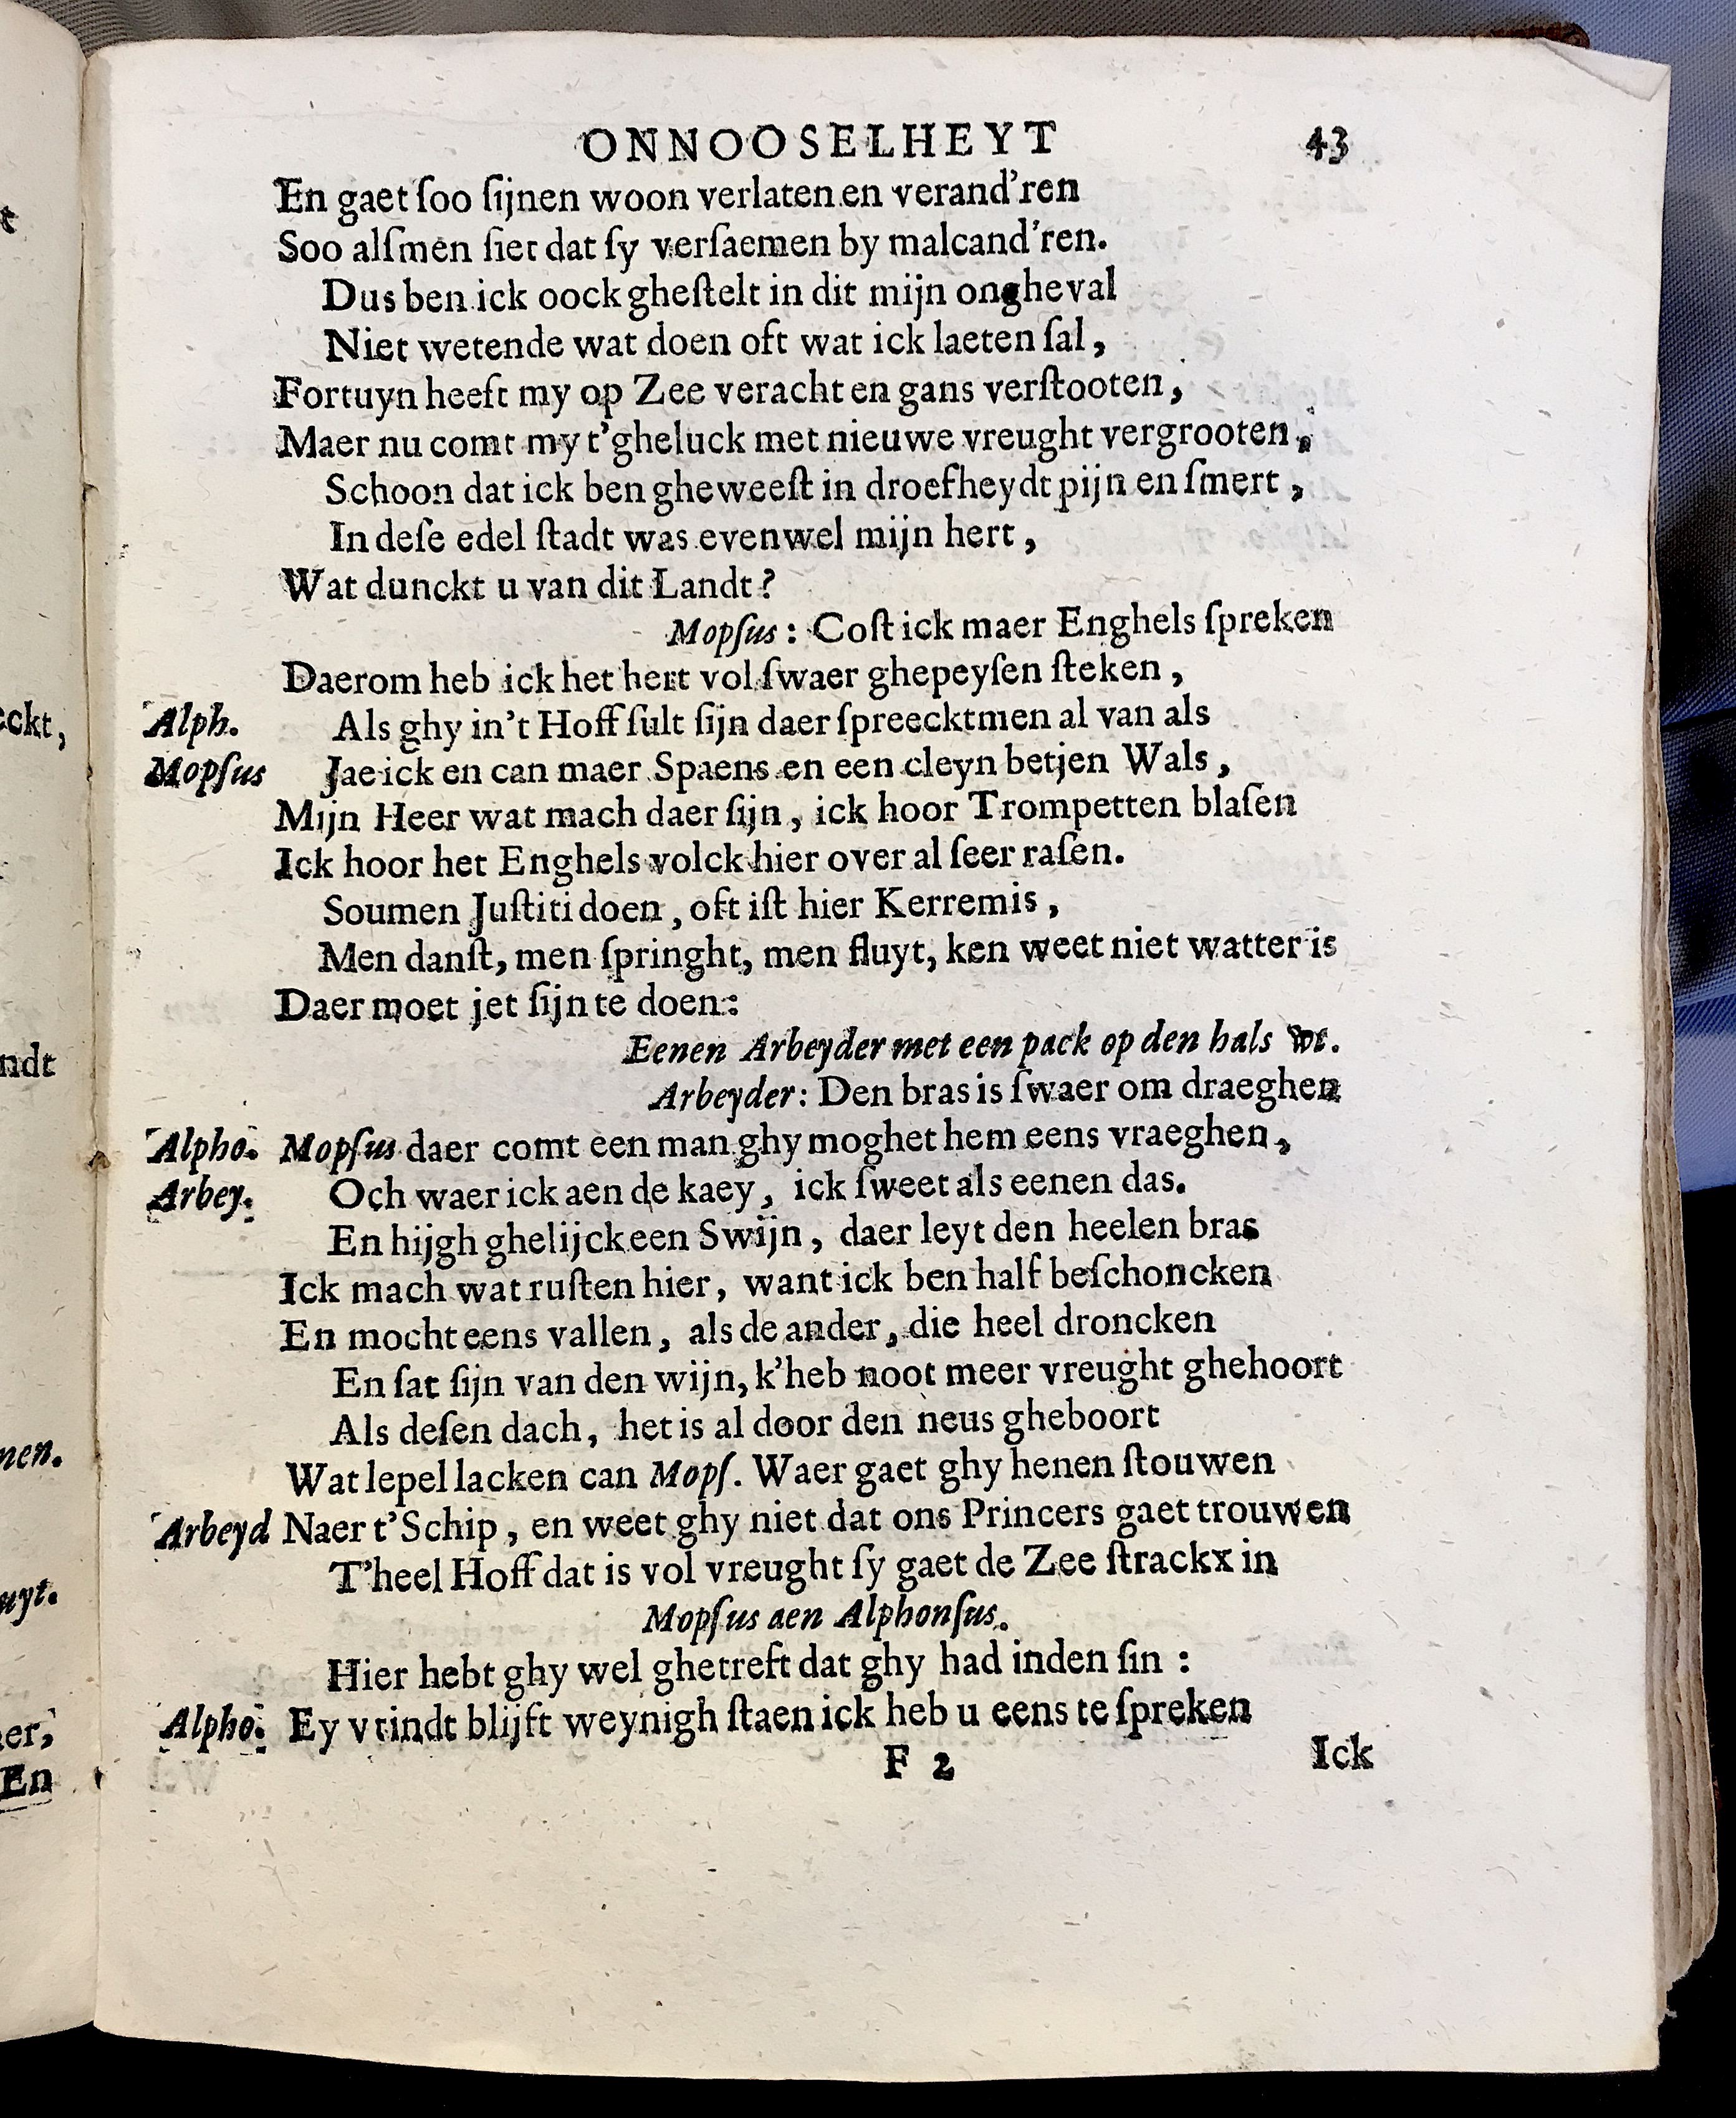 ONNOOSELHEYT 43
En gaet ſoo ſijnen woon verlaten en verand'ren
Soo alſmen ſiet dat ſy verſaemen by malcand'ren.
Dus ben ick oock gheſtelt in dit mijn ongheval
Niet wetende wat doen oft wat ick laeten ſal,
Fortuyn heeft my op Zee veracht en gans verſtooten,
Maer nu comt my t'gheluck met nieuwe vreught vergrooten,
Schoon dat ick ben gheweeſt in droefheydt pijn en ſmert,
In deſe edel ſtadt was evenwel mijn hert,
Wat dunckt u van dit Landt?
Mopſus: Coſt ick maer Enghels ſpreken
Daerom heb ick het hert vol ſwaer ghepeyſen ſteken,
Alph. Als ghy in't Hoff ſult ſijn daer ſpreecktmen al van als
Mopſus Jae ick en can maer Spaens en een cleyn betjen Wals,
Mijn Heer wat mach daer ſijn, ick hoor Trompetten blaſen
Ick hoor het Enghels volck hier over al ſeer raſen.
Soumen Juſtiti doen, oft iſt hier Kerremis,
Men danſt, men ſpringht, men fluyt, ken weet niet watter is
Daer moet jet ſijn te doen:
Eenen Arbeyder met een pack op den hals wt.
Arbeyder: Den bras is ſwaer om draeghen
Alpho. Mopſus daer comt een man ghy moghet hem eens vraeghen,
Arbey. Och waer ick aen de kaey, ick ſweet als eenen das.
En hijgh ghelijck een Swijn, daer leyt den heelen bras
Ick mach wat ruſten hier, want ick ben half beſchoncken
En mocht eens vallen, als de ander, die heel droncken
En ſat ſijn van den wijn, k'heb noot meer vreught ghehoort
Als deſen dach, het is al door den neus gheboort
Wat lepel lacken can Mopſ. Waer gaet ghy henen ſtouwen
Arbeyd Naer t'Schip, en weet ghy niet dat ons Princers gaet trouwen
T'heel Hoff dat is vol vreught ſy gaet de Zee ſtrackx in
Mopſus aen Alphonſus.
Hier hebt ghy wel ghetreft dat ghy had inden ſin:
Alpho. Ey vrindt blijft weynigh ſtaen ick heb u eens te ſpreken
F 2 Ick
ckt,
ndt
nen.
uyt.
er,
En